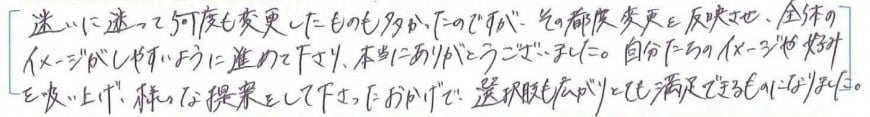 迷いに迷って何度も変更したものも多かったのですが、その都度変更を反映させ、全体の
イメージがしやすいように進めて下さり、本当にありがとうございました。自分たちのイメージや好み
を吸い上げ、様々な提案をして下さったおかげで、選択肢も広がりとても満足できるものになりました。